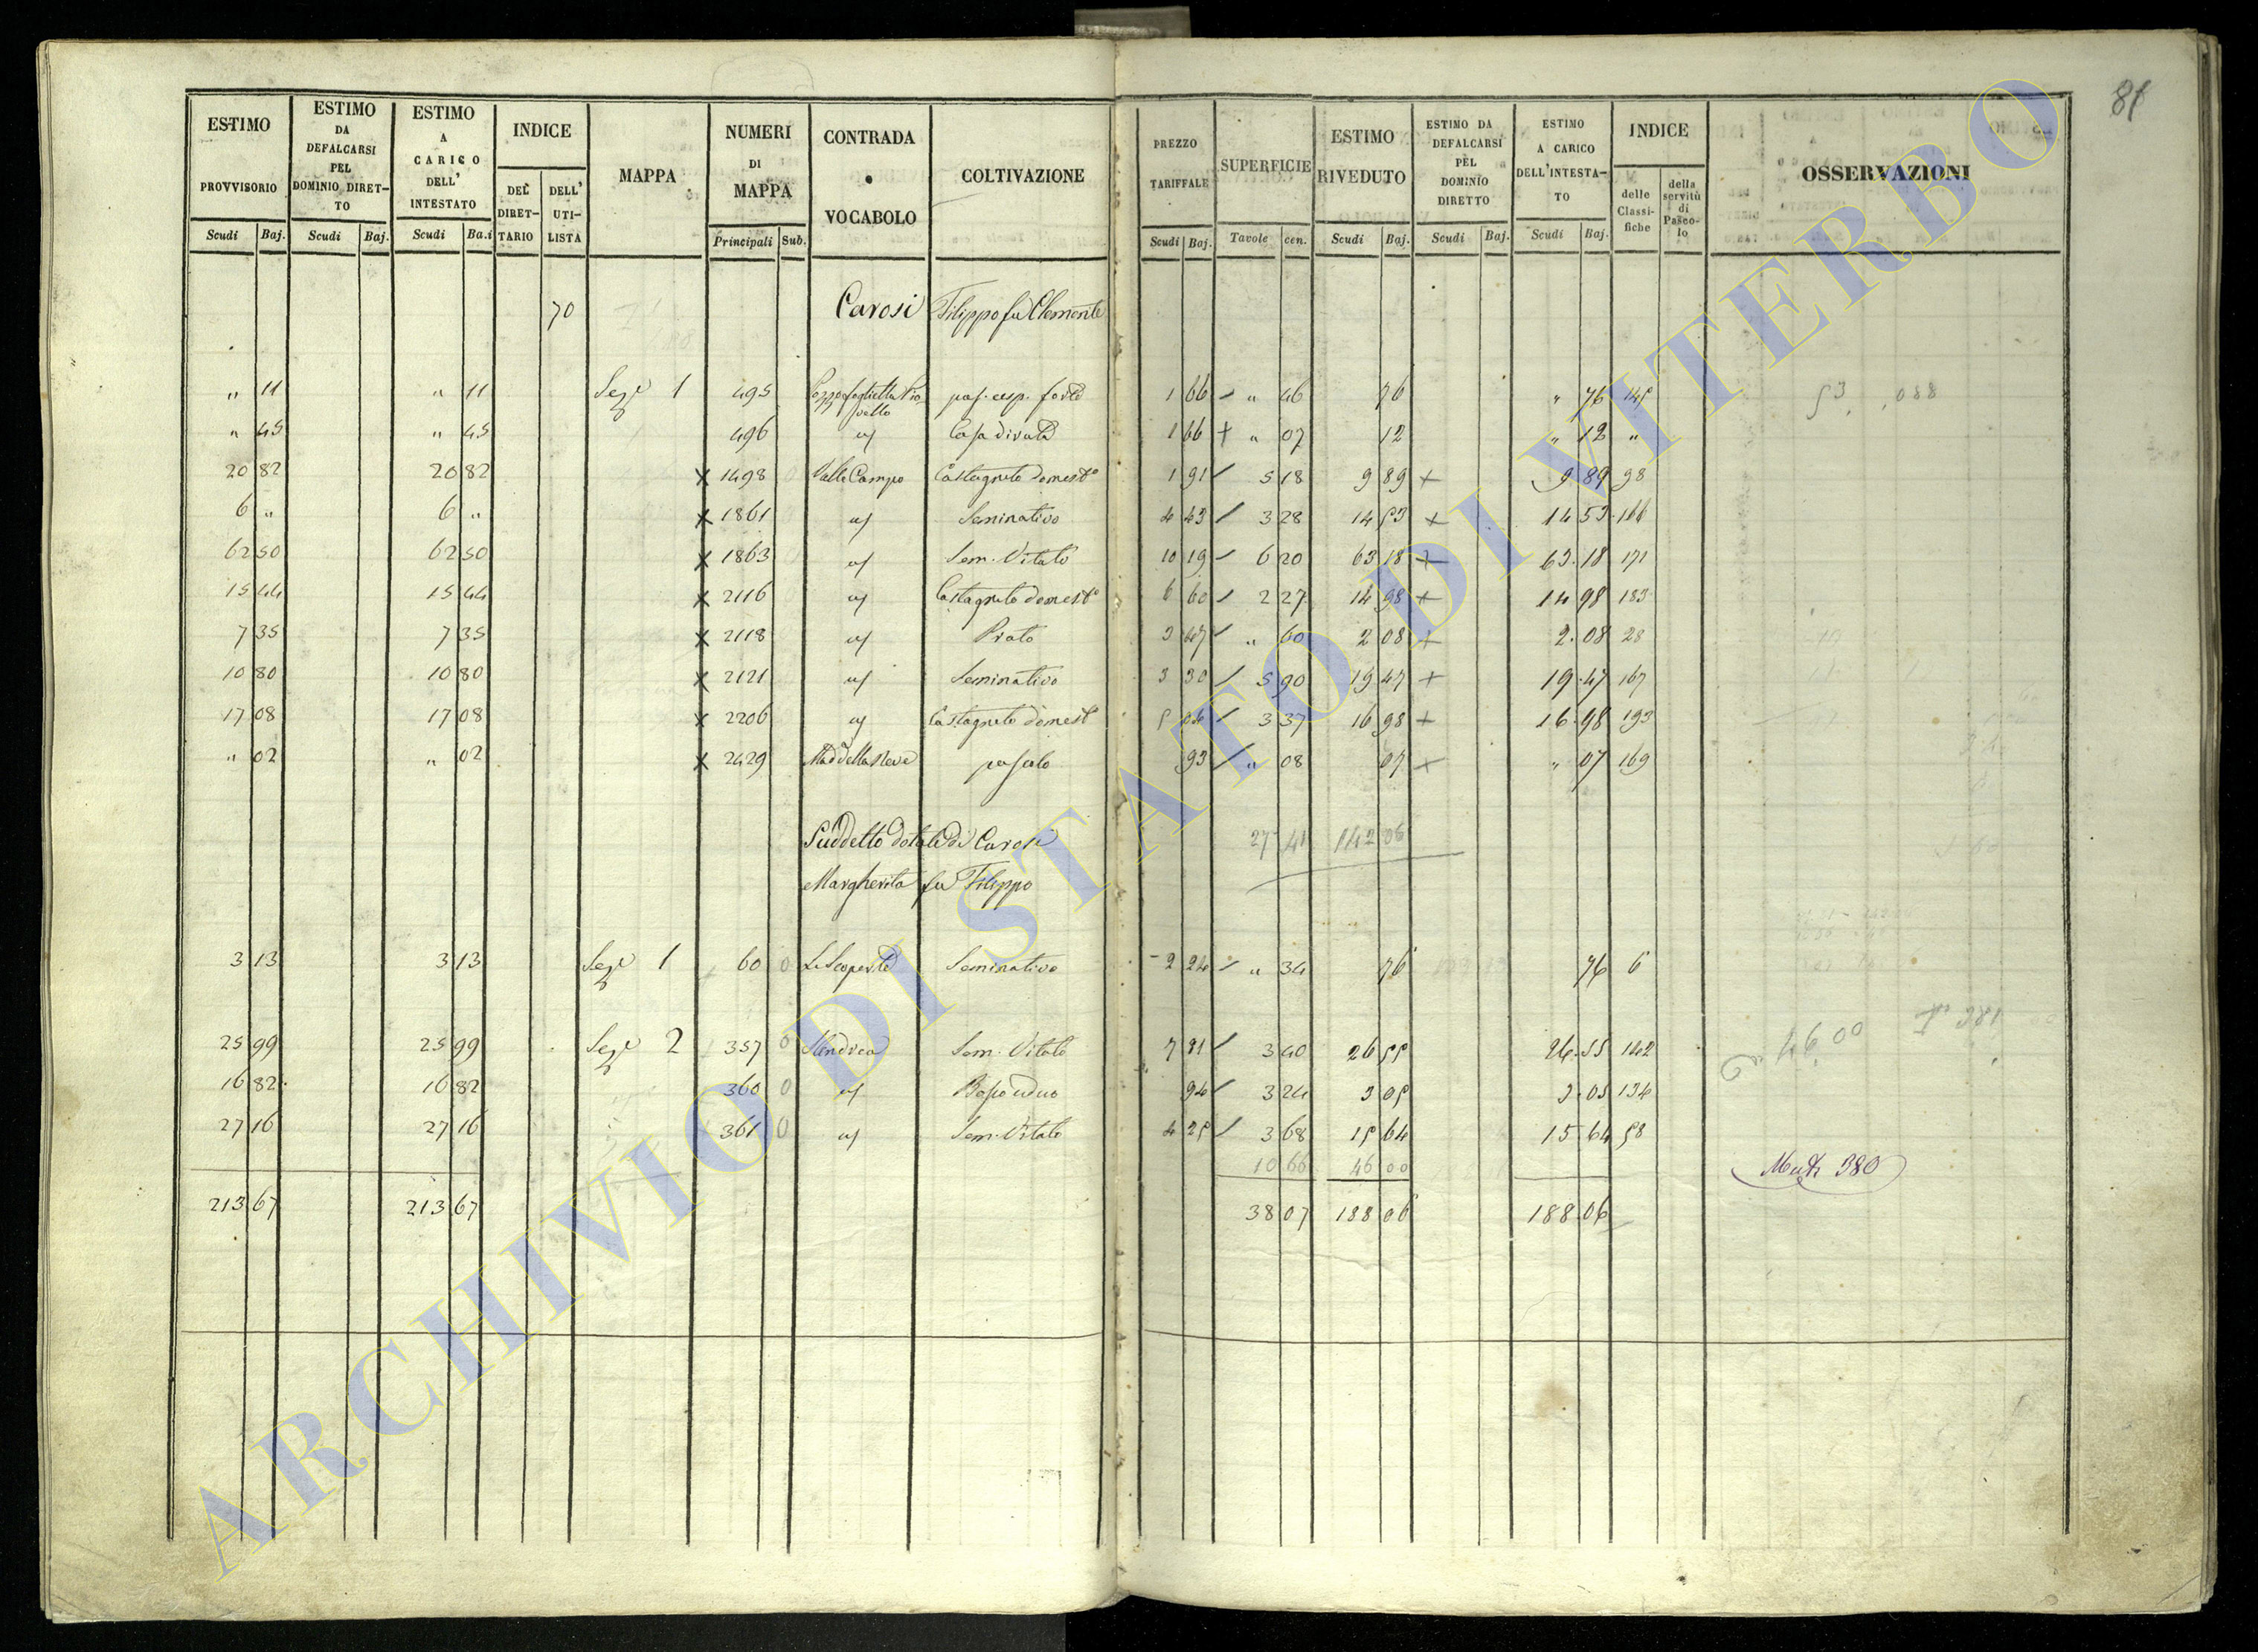 81
ESTIMO PROVVISORIO
ESTIMO DA DEFALCARSI PEL DOMINIO DIRETTO
ESTIMO A CARICO DELL' INTESTATO
INDICE
DEL DIRETTARIO
DELL' UTILISTA
MAPPA
NUMERI DI MAPPA
CONTRADA o VOCABOLO
COLTIVAZIONE
PREZZO TARIFFALE
SUPERFICIE
ESTIMO RIVEDUTO
ESTIMO DA DEFALCARSI PEL DOMINIO DIRETTO
ESTIMO A CARICO DELL'INTESTATO
INDICE
delle Classifiche
della servitù di Pascolo
OSSERVAZIONI
Scudi Baj. Scudi Baj. Scudi Baj. Principali Sub. Scudi Baj. Tavole cen. Scudi Baj. Scudi Baj. Scudi Baj.
70 Carosi Filippo fu Clemente
" 11 " 11 Sez.e 1 495 pas. cesp. forte 1 66 " 46 76 " 76 145
" 45 " 45 496 " Casa diruta 1 66 + " 07 12 " 12 "
20 82 20 82 x 1498 Valle Campo Castagneto domest.o 1 91 5 18 9 89 + 9 89 98
6 " 6 " x 1861 " Seminativo 4 43 3 28 14 53 + 14 53 166
62 50 62 50 x 1863 " Sem. Vitato 10 19 6 20 63 18 + 63.18 171
15 44 15 44 x 2116 " Castagneto domest.o 6 60 2 27 14 98 + 14 98 183
7 35 7 35 x 2118 " Prato 3 47 " 60 2 08 + 2.08 28
10 80 10 80 x 2121 " Seminativo 3 30 5 90 19 47 + 19.47 167
17 08 17 08 x 2206 " Castagneto domest 5 04 3 37 16 98 + 16.98 193
" 02 " 02 x 2429 Mad della Neve pascolo 93 " 08 07 + " 07 169
27 41 142 06
Suddetto dotale di Carosi
Margherita fu Filippo
3 13 3 13 Sez.e 1 60 0 Le Scoperte Seminativo 2 24 " 34 76 76 6
25 99 25 99 Sez.e 2 357 0 S Andrea Sem. Vitato 7 81 3 40 26 55 26.55 142
16 82 16 82 360 0 " Bosco ceduo 94 3 24 3 05 3.05 134
27 16 27 16 361 0 " Sem. Vitato 4 25 3 68 15 64 15 64 58
10 66 46 00
46,00
380
213 67 213 67 38 07 188 06 188.06
ARCHIVIO DI STATO DI VITERBO